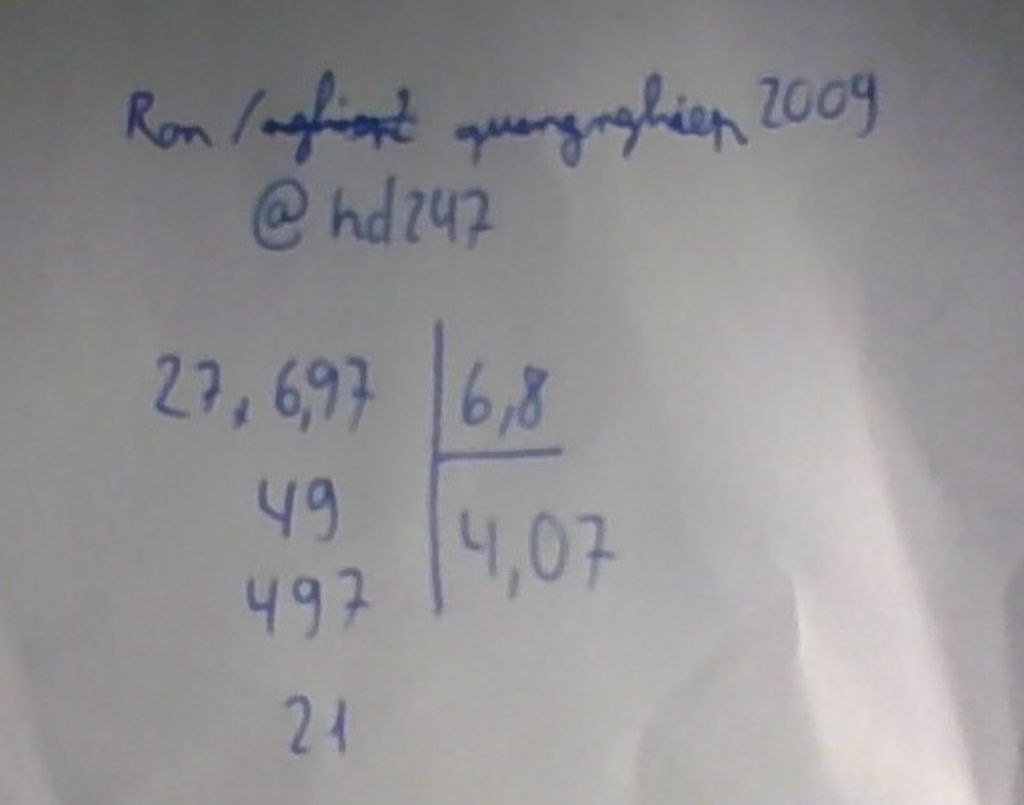 Ron / quangnghiep 2009
@hd247
27,6,97 6,8
49 4,07
497
21